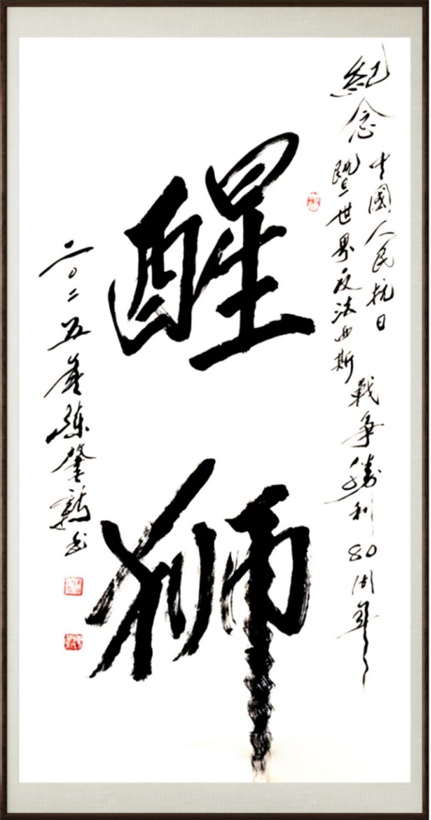 紀念
中國人民抗日
暨世界反法西斯
戰爭勝利80周年
醒狮
二〇二五年